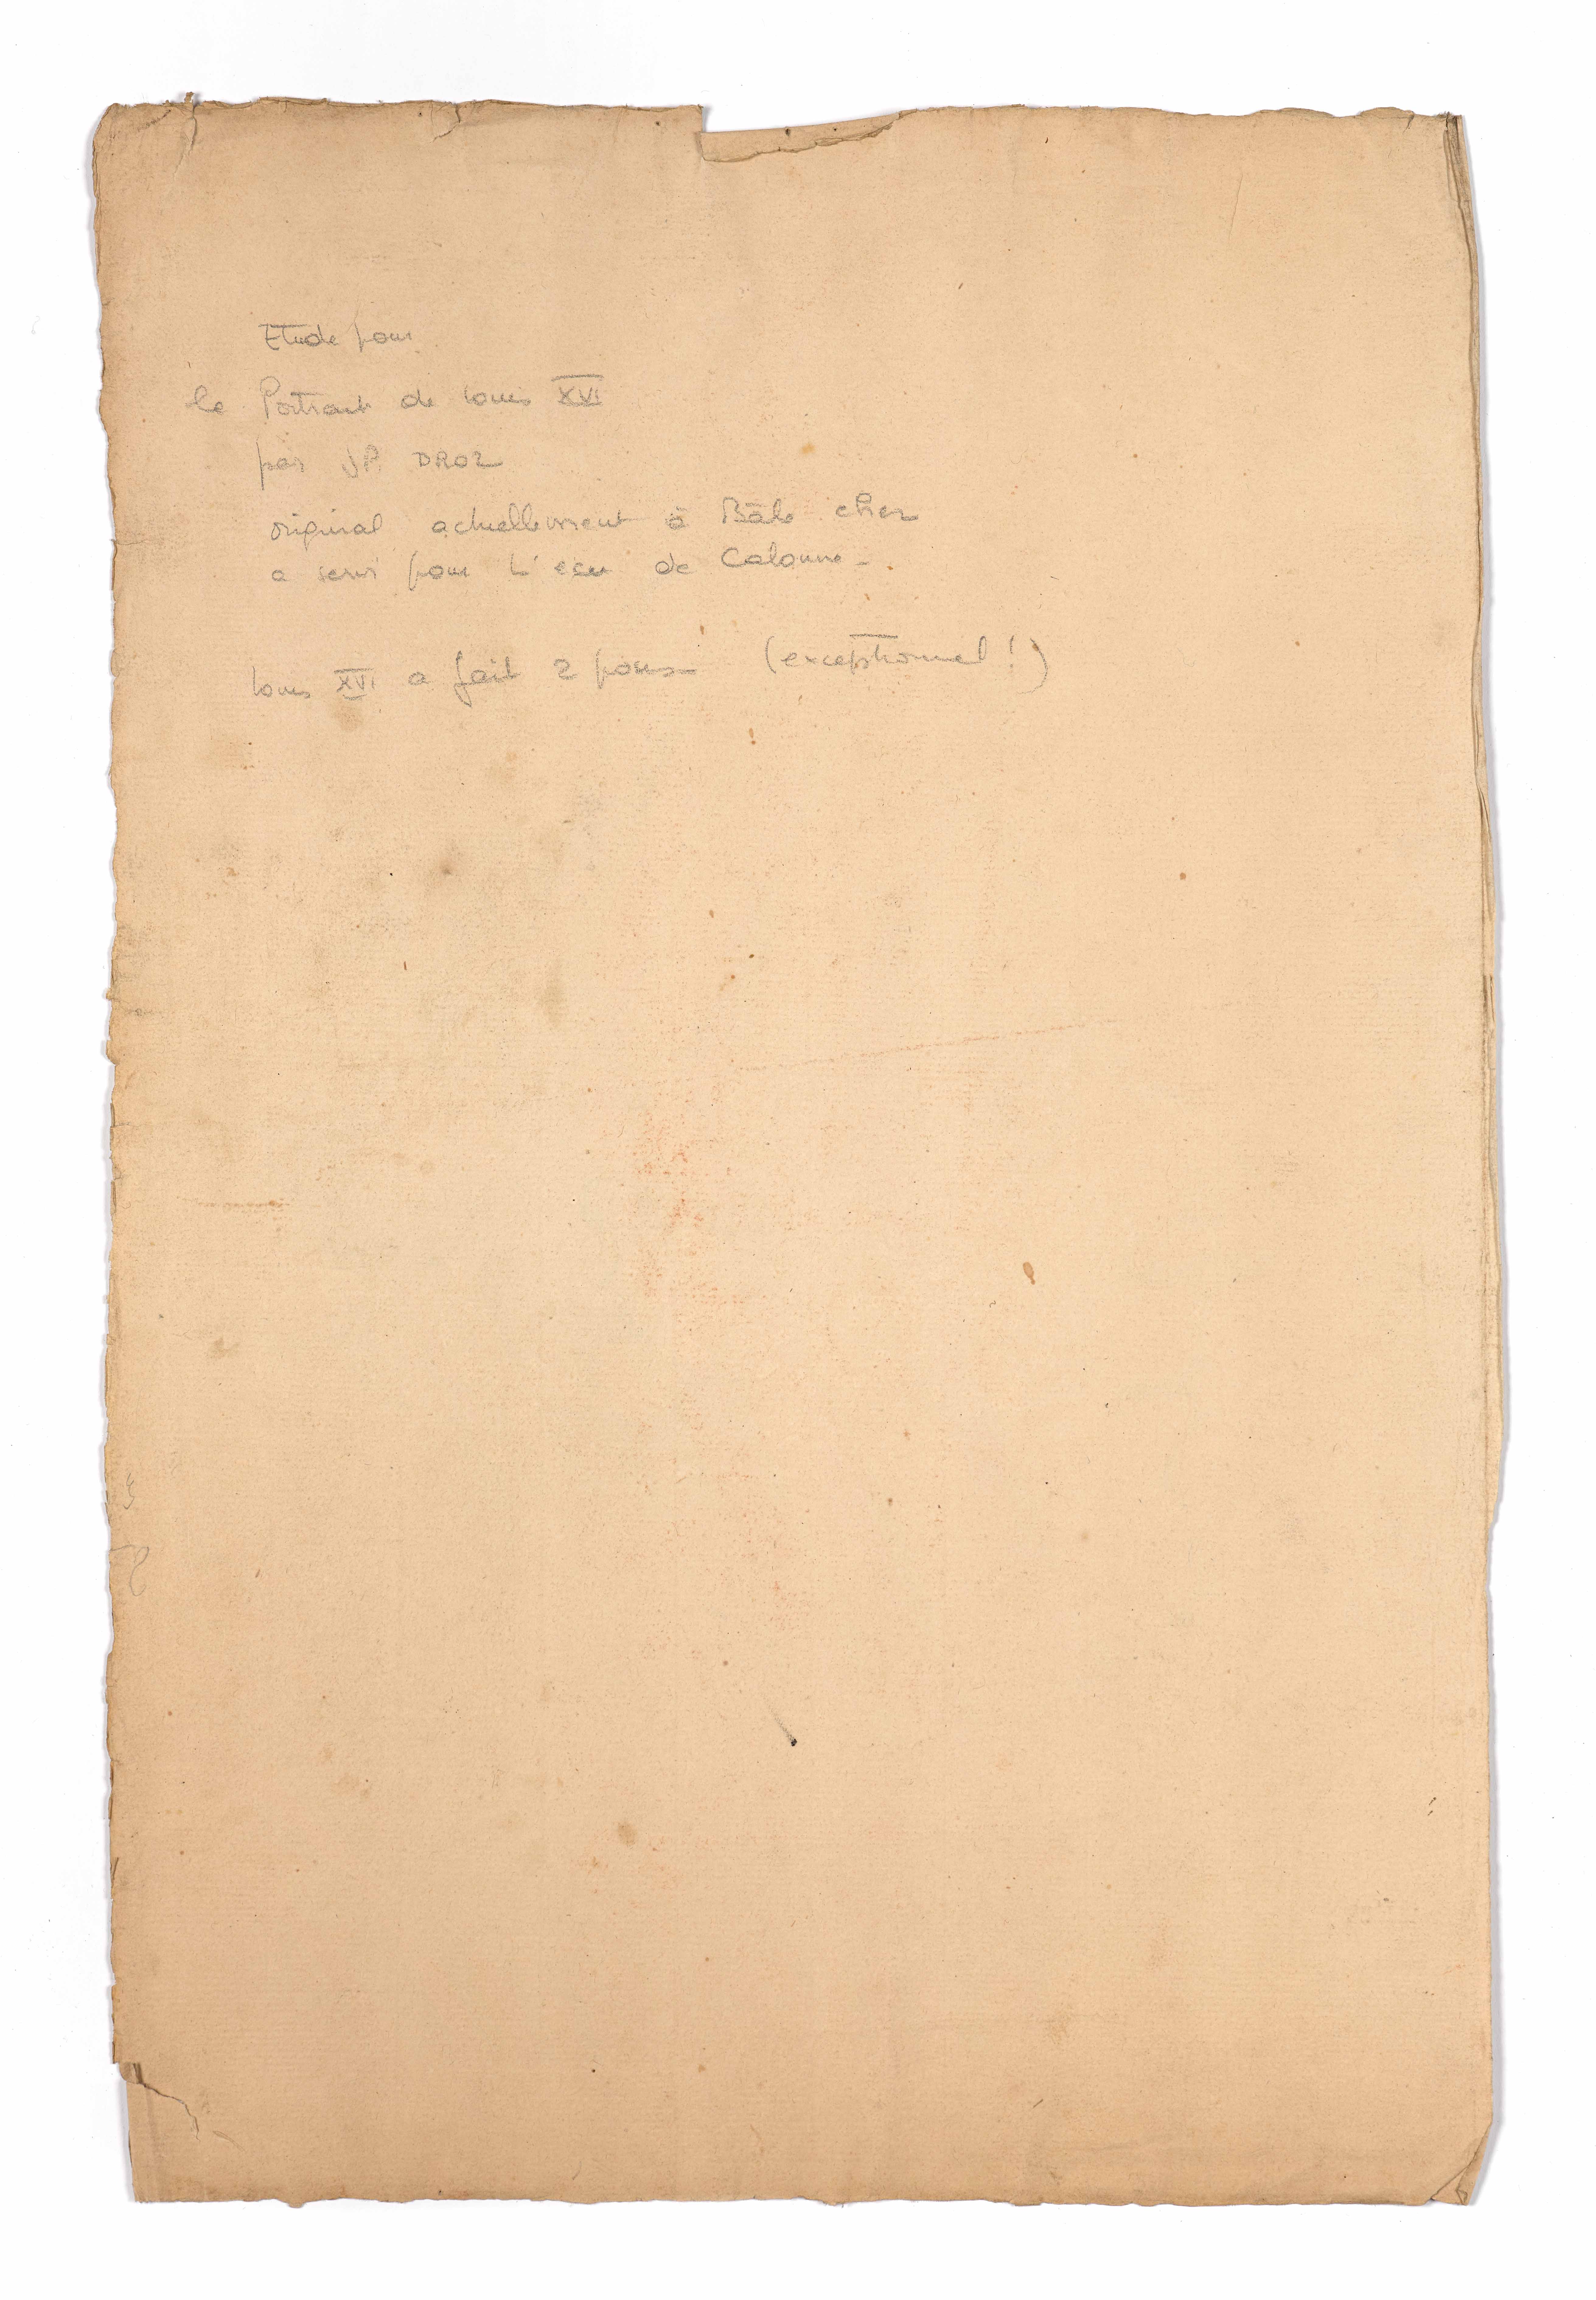 Etude pour
le Portrait de Louis XVI
par JP. DROZ
original actuellement à Bâle chez
a servi pour L'ecu de Calonne -
Louis XVI a fait 2 poses (exceptionnel !)